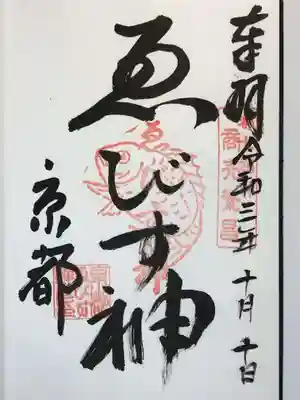 奉拝 令和三年 十月 十日
商売繁昌
ゑびす神
京都